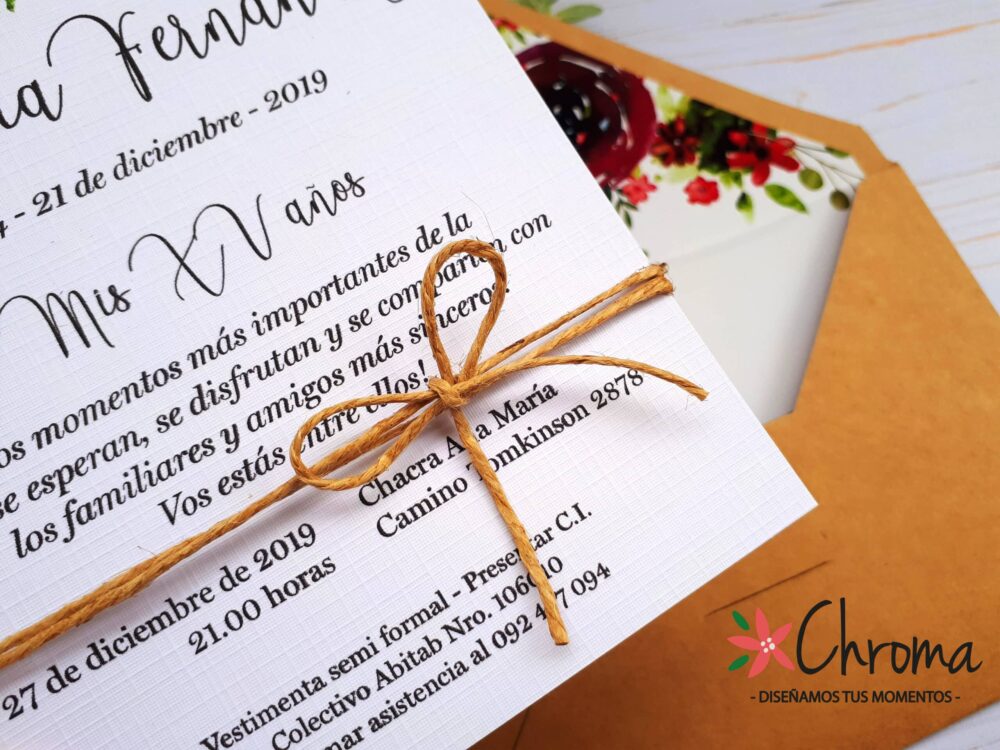 Fernan
- 21 de diciembre - 2019
Mis XV años
momentos más importantes de la
se esperan, se disfrutan y se comparten con
los familiares y amigos más sinceros.
Vos estás entre ellos!
27 de diciembre de 2019
21.00 horas
Chacra Ana María
Camino Tomkinson 2878
Vestimenta semi formal - Presentar C.I.
Colectivo Abitab Nro.
asistencia al 092
Chroma
- DISEÑAMOS TUS MOMENTOS -